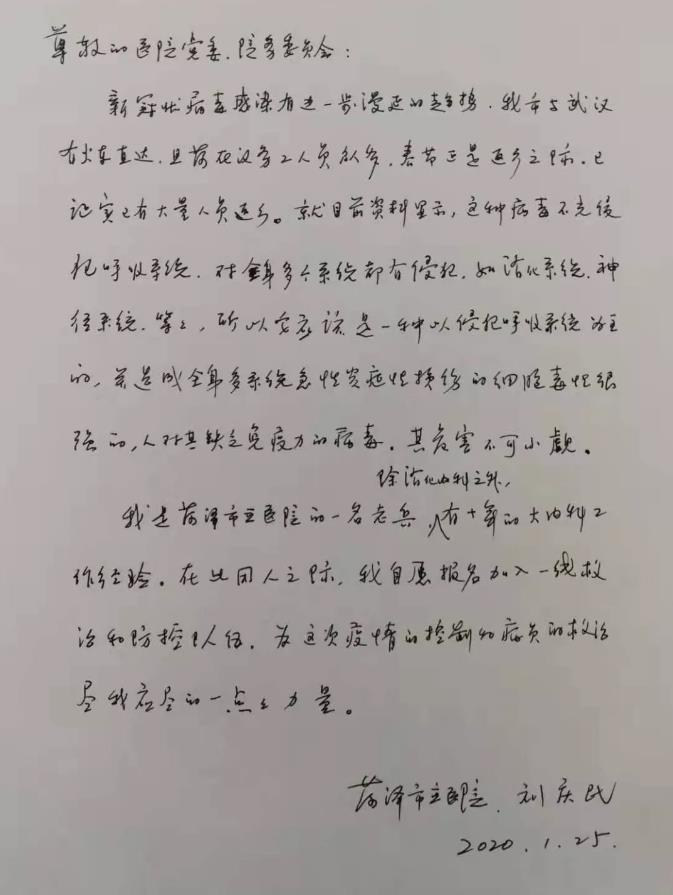 尊敬的医院党委、院务委员会：
新冠状病毒感染有进一步漫延的趋势，我市与武汉
有火车直达，且菏在汉务工人员众多，春节正是返乡之际，已
证实已有大量人员返乡。就目前资料显示，这种病毒不光侵
犯呼吸系统，对全身多个系统都有侵犯，如消化系统，神
经系统，等等，所以它应该是一种以侵犯呼吸系统为主
的，并造成全身多系统急性炎症性损伤的细胞毒性很
强的，人对其缺乏免疫力的病毒，其危害不可小觑。
除消化内科之外，
我是菏泽市立医院的一名老兵，有十年的大内科工
作经验。在此困人之际，我自愿报名加入一线救
治和防控队伍，为这次疫情的控制和病员的救治
尽我应尽的一点点力量。
菏泽市立医院 刘庆民
2020.1.25.